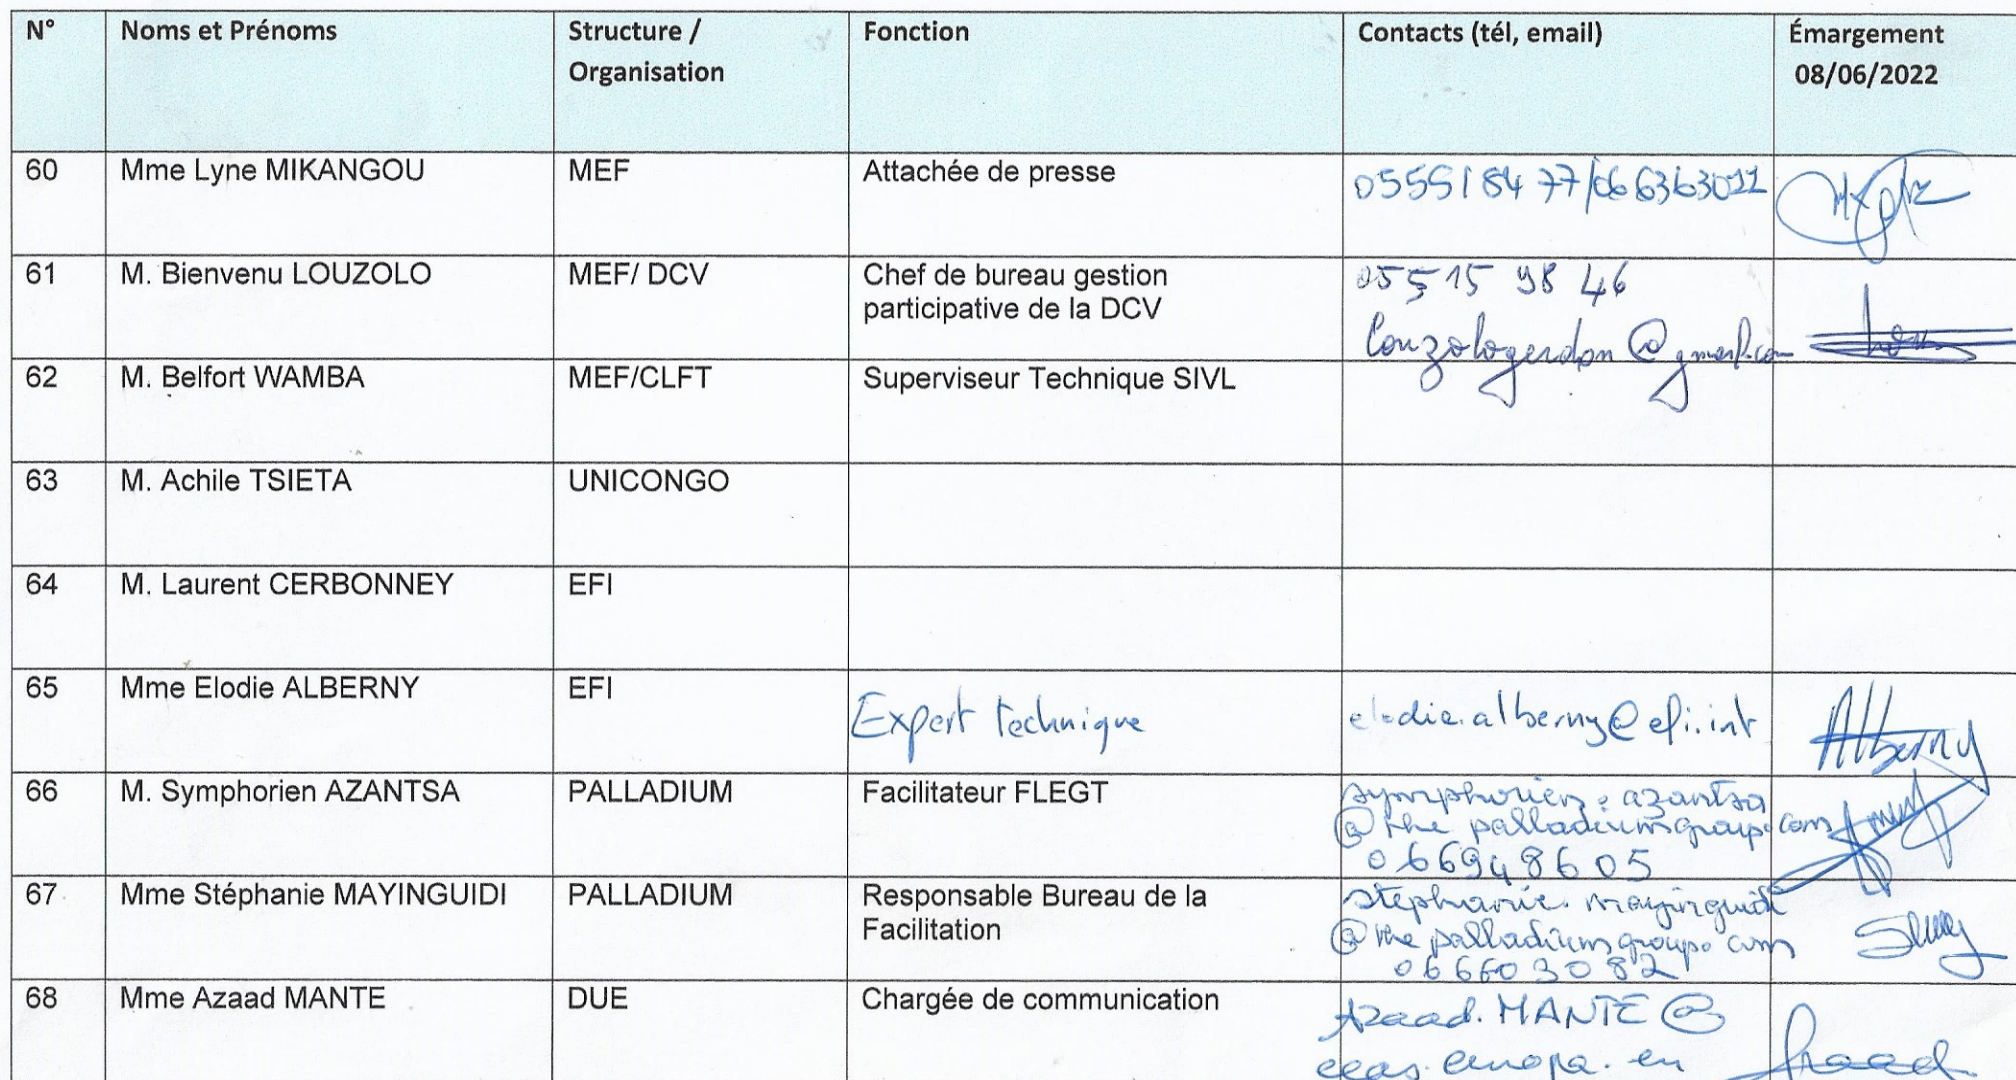 N° Noms et Prénoms Structure / Fonction Contacts (tél, email) Émargement
Organisation 08/06/2022
60 Mme Lyne MIKANGOU MEF Attachée de presse 055518477/066363011
61 M. Bienvenu LOUZOLO MEF/ DCV Chef de bureau gestion 055 15 98 46
participative de la DCV louzologerdon@gmail.com
62 M. Belfort WAMBA MEF/CLFT Superviseur Technique SIVL
63 M. Achile TSIETA UNICONGO
64 M. Laurent CERBONNEY EFI
65 Mme Elodie ALBERNY EFI Expert technique elodie.alberny@efi.int Alberny
66 M. Symphorien AZANTSA PALLADIUM Facilitateur FLEGT symphorien.azantsa
@thepalladiumgroup.com
066948605
67 Mme Stéphanie MAYINGUIDI PALLADIUM Responsable Bureau de la stephanie.mayinguidi
Facilitation @thepalladiumgroup.com
066603082
68 Mme Azaad MANTE DUE Chargée de communication Azaad.MANTE@
eeas.europa.eu Azaad